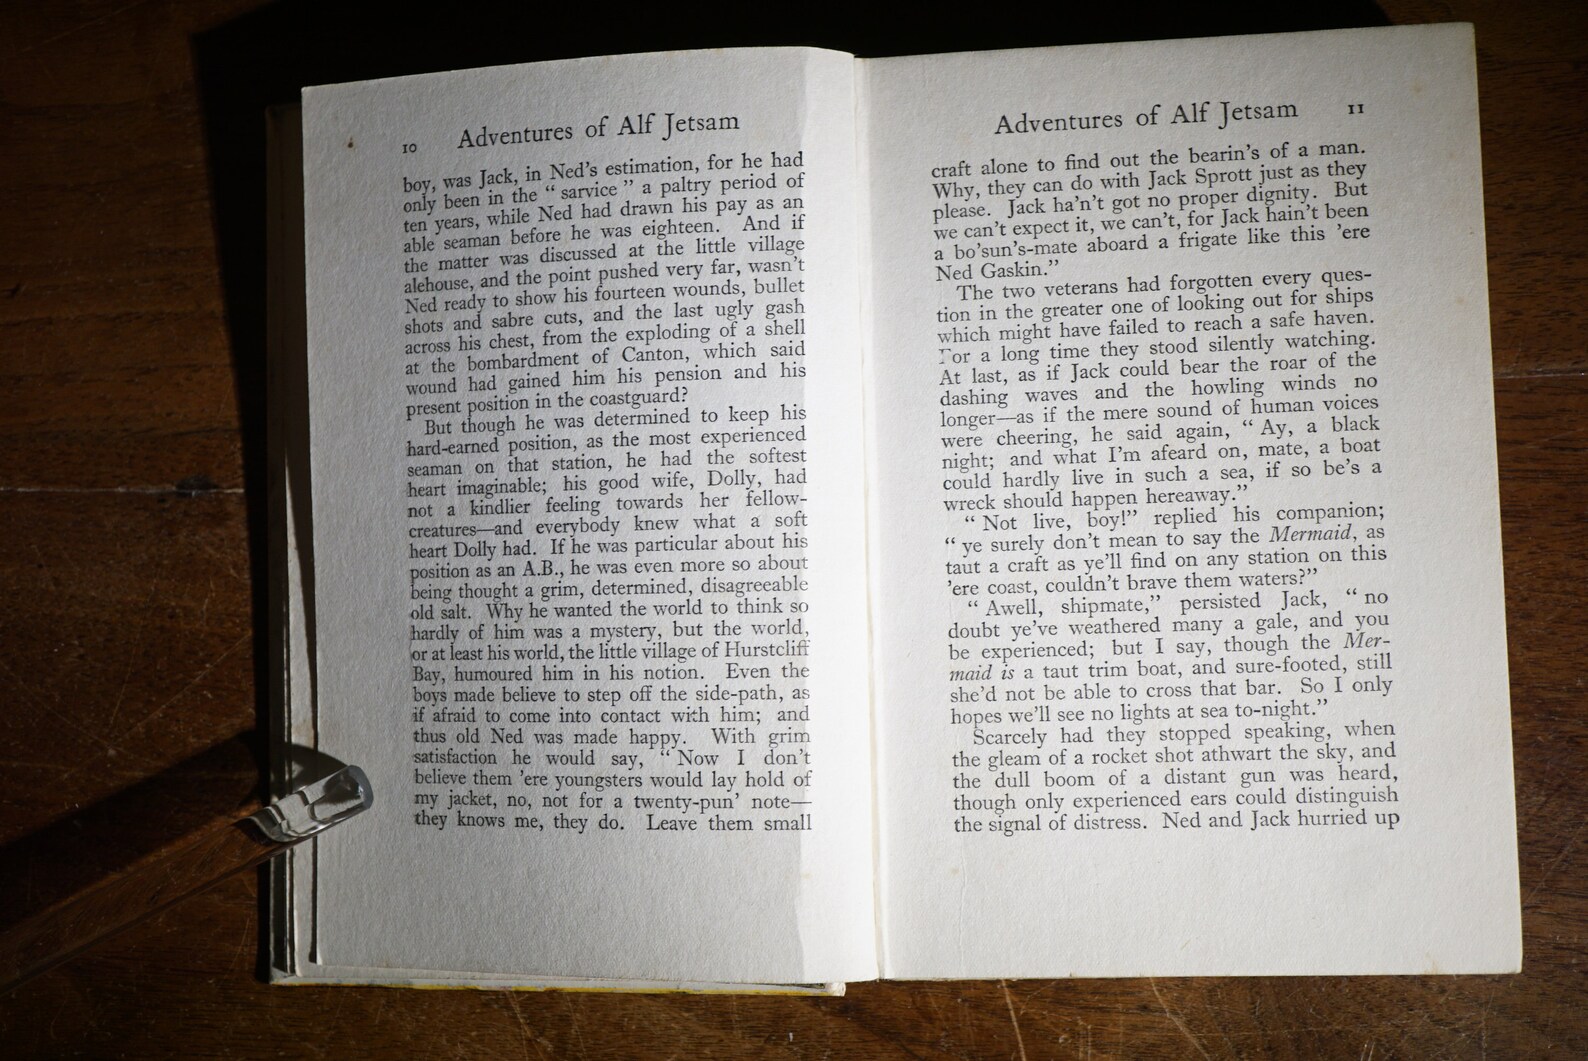 10 Adventures of Alf Jetsam
boy, was Jack, in Ned's estimation, for he had
only been in the “ sarvice ” a paltry period of
ten years, while Ned had drawn his pay as an
able seaman before he was eighteen. And if
the matter was discussed at the little village
alehouse, and the point pushed very far, wasn't
Ned ready to show his fourteen wounds, bullet
shots and sabre cuts, and the last ugly gash
across his chest, from the exploding of a shell
at the bombardment of Canton, which said
wound had gained him his pension and his
present position in the coastguard?
But though he was determined to keep his
hard-earned position, as the most experienced
seaman on that station, he had the softest
heart imaginable; his good wife, Dolly, had
not a kindlier feeling towards her fellow-
creatures—and everybody knew what a soft
heart Dolly had. If he was particular about his
position as an A.B., he was even more so about
being thought a grim, determined, disagreeable
old salt. Why he wanted the world to think so
hardly of him was a mystery, but the world,
or at least his world, the little village of Hurstcliff
Bay, humoured him in his notion. Even the
boys made believe to step off the side-path, as
if afraid to come into contact with him; and
thus old Ned was made happy. With grim
satisfaction he would say, “ Now I don't
believe them 'ere youngsters would lay hold of
my jacket, no, not for a twenty-pun' note—
they knows me, they do. Leave them small
Adventures of Alf Jetsam 11
craft alone to find out the bearin's of a man.
Why, they can do with Jack Sprott just as they
please. Jack ha'n't got no proper dignity. But
we can't expect it, we can't, for Jack hain't been
a bo'sun's-mate aboard a frigate like this 'ere
Ned Gaskin.”
The two veterans had forgotten every ques-
tion in the greater one of looking out for ships
which might have failed to reach a safe haven.
For a long time they stood silently watching.
At last, as if Jack could bear the roar of the
dashing waves and the howling winds no
longer—as if the mere sound of human voices
were cheering, he said again, “ Ay, a black
night; and what I'm afeard on, mate, a boat
could hardly live in such a sea, if so be's a
wreck should happen hereaway.”
“ Not live, boy!” replied his companion;
“ ye surely don't mean to say the Mermaid, as
taut a craft as ye'll find on any station on this
'ere coast, couldn't brave them waters?”
“ Awell, shipmate,” persisted Jack, “ no
doubt ye've weathered many a gale, and you
be experienced; but I say, though the Mer-
maid is a taut trim boat, and sure-footed, still
she'd not be able to cross that bar. So I only
hopes we'll see no lights at sea to-night.”
Scarcely had they stopped speaking, when
the gleam of a rocket shot athwart the sky, and
the dull boom of a distant gun was heard,
though only experienced ears could distinguish
the signal of distress. Ned and Jack hurried up